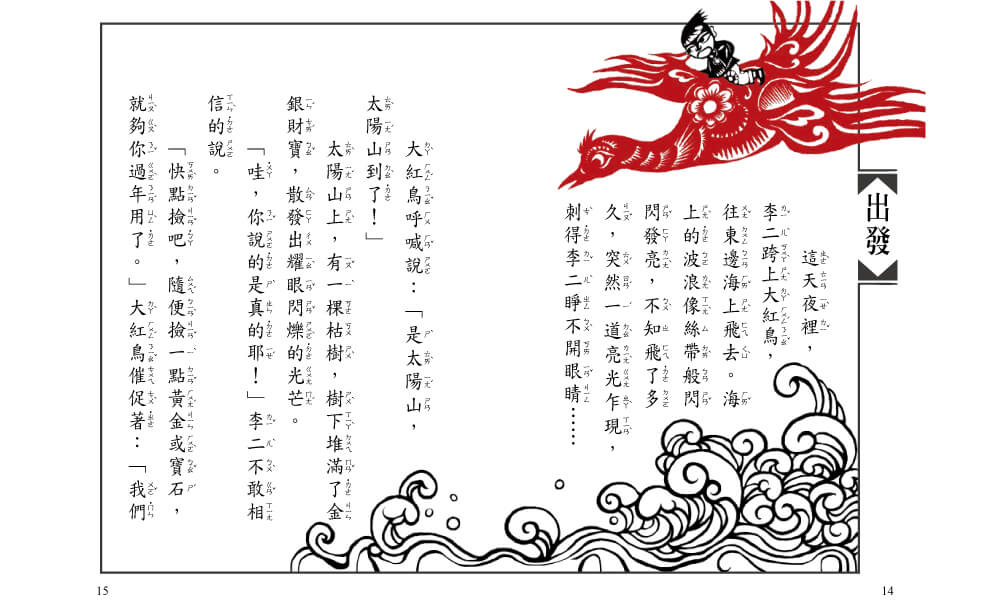 出發
這天夜裡，
李二跨上大紅鳥，
往東邊海上飛去。海
上的波浪像絲帶般閃
閃發亮，不知飛了多
久，突然一道亮光乍現，
刺得李二睜不開眼睛……
大紅鳥呼喊說：「是太陽山，
太陽山到了！」
太陽山上，有一棵枯樹，樹下堆滿了金
銀財寶，散發出耀眼閃爍的光芒。
「哇，你說的是真的耶！」李二不敢相
信的說。
「快點撿吧，隨便撿一點黃金或寶石，
就夠你過年用了。」大紅鳥催促著：「我們
15
14